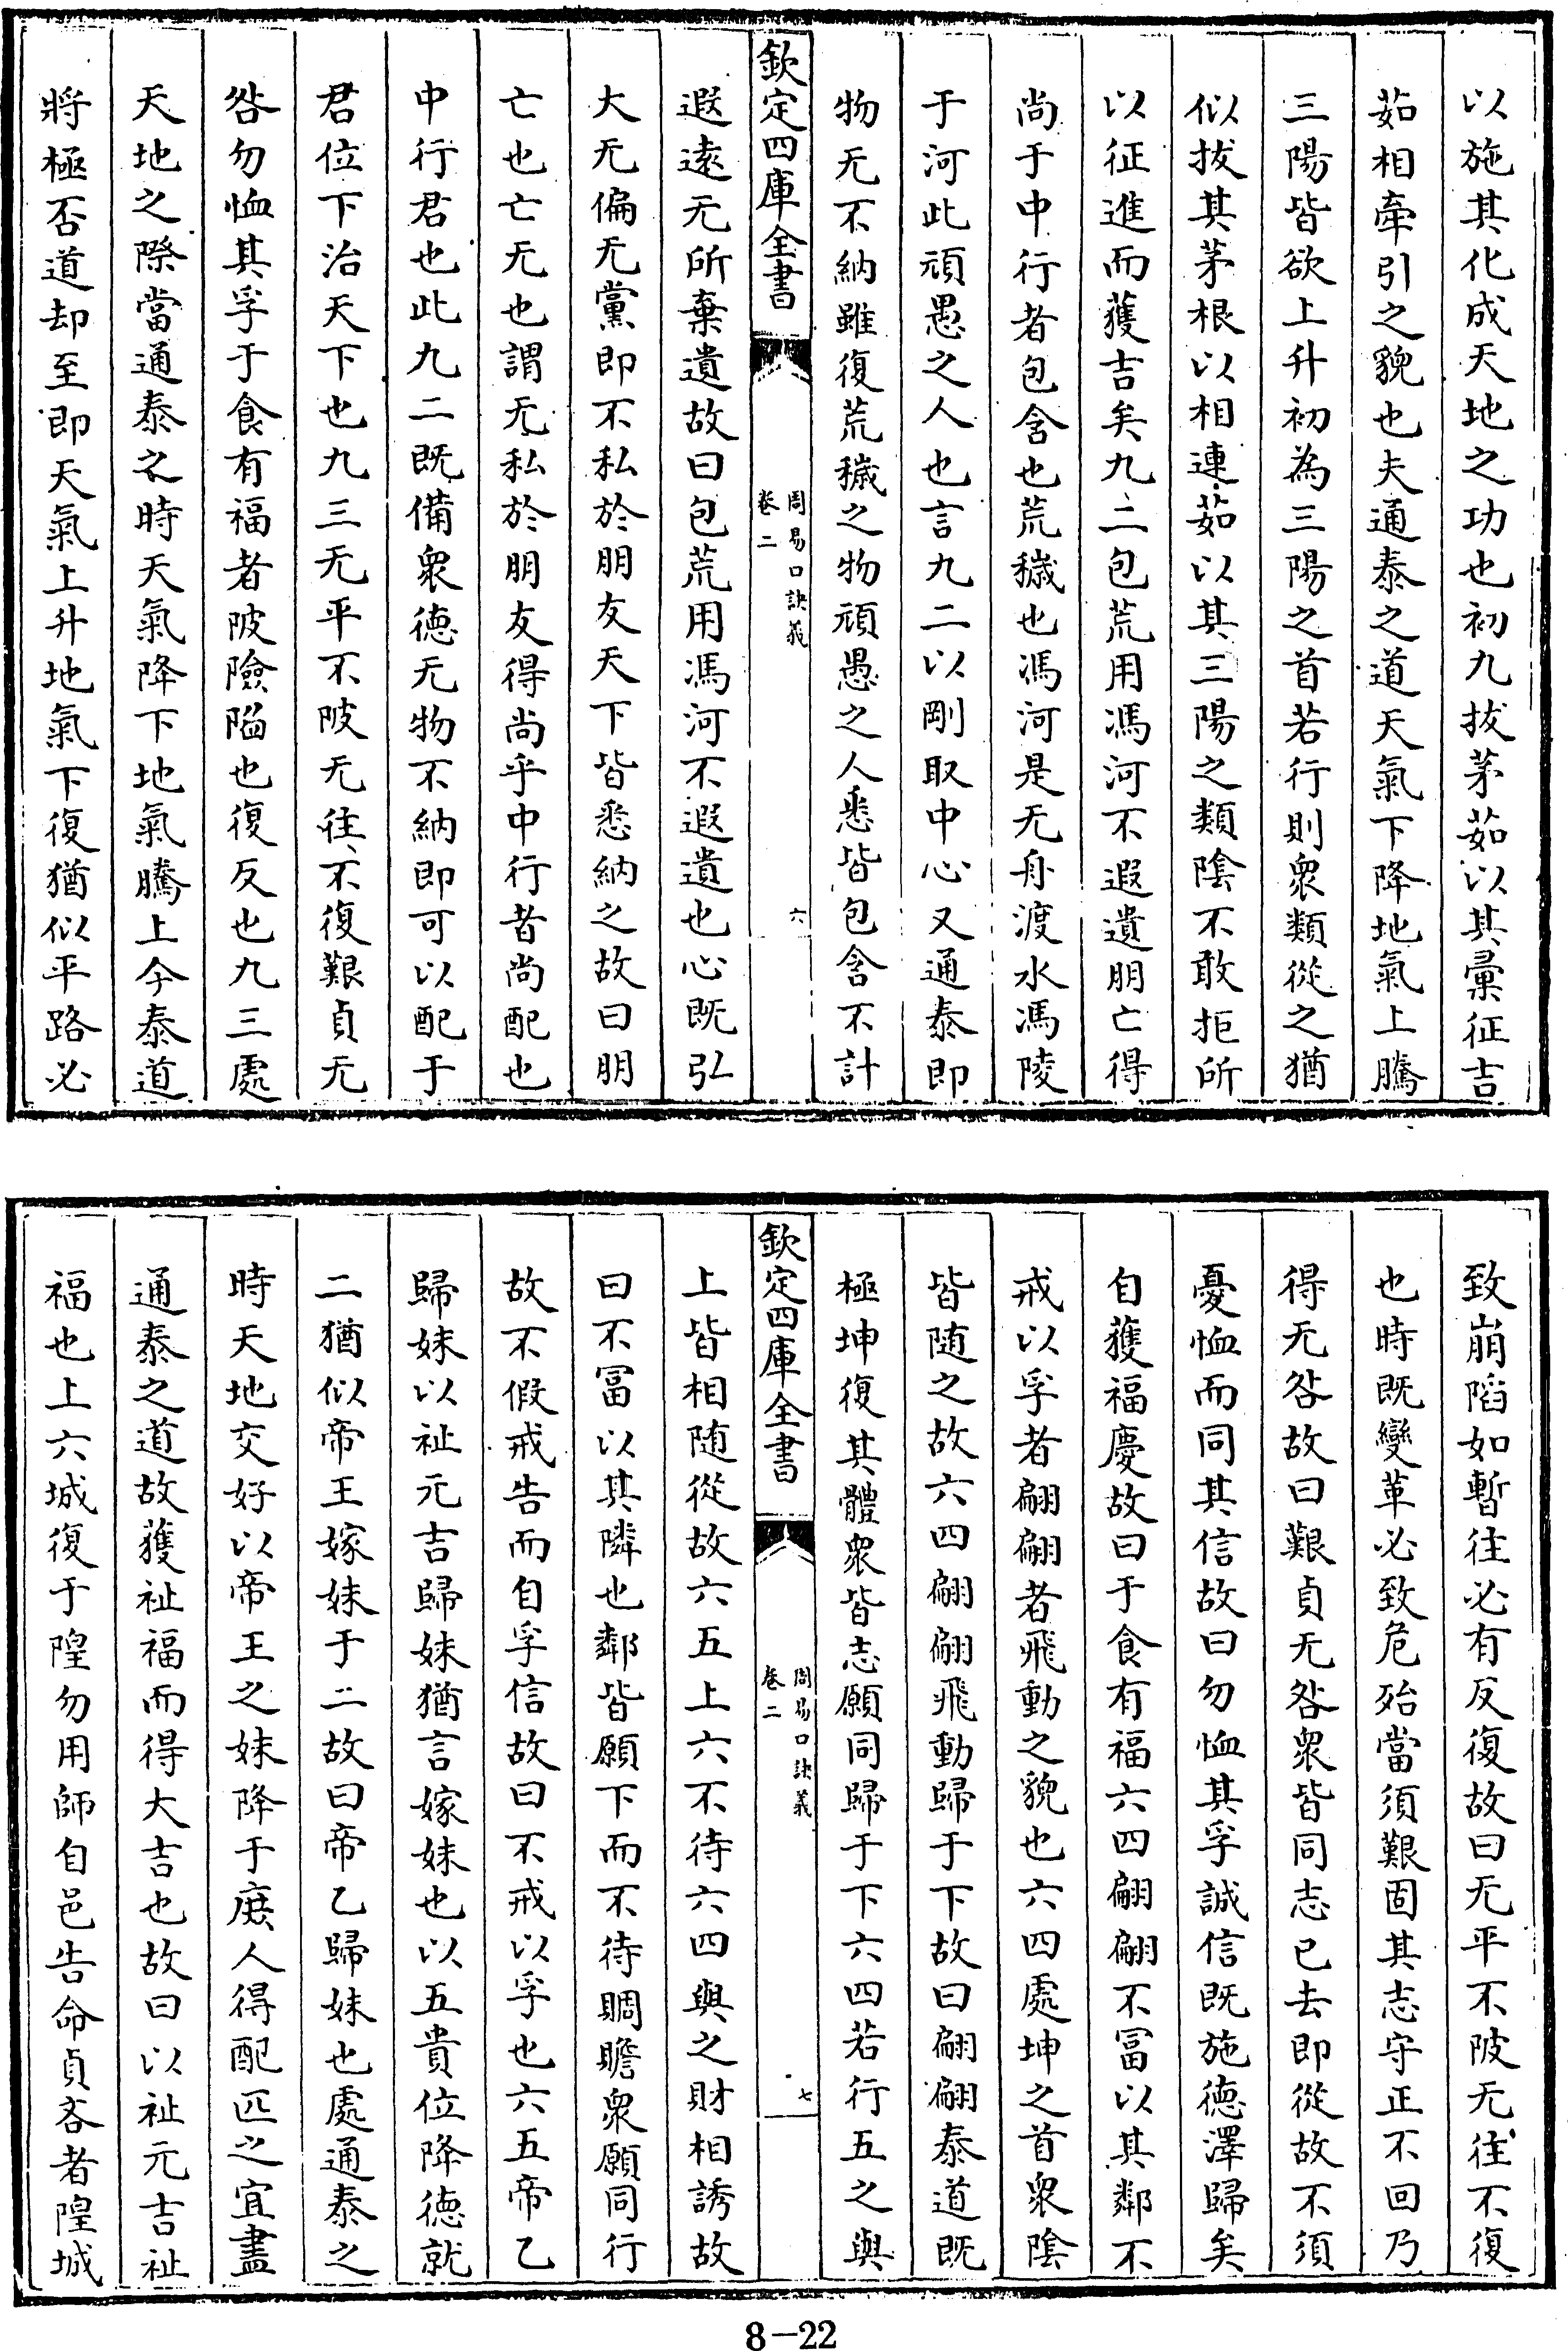 以施其化成天地之功也初九拔茅茹以其彙征吉
茹相牽引之貌也夫通泰之道天氣下降地氣上騰
三陽皆欲上升初為三陽之首若行則衆類從之猶
似拔其茅根以相連茹以其三陽之類陰不敢拒所
以征進而獲吉矣九二包荒用馮河不遐遺朋亡得
尚于中行者包含也荒穢也馮河是无舟渡水馮陵
于河此頑愚之人也言九二以剛取中心又通泰即
物无不納雖復荒穢之物頑愚之人悉皆包含不計
欽定四庫全書
周易口訣義
卷二
六
遐遠无所棄遺故曰包荒用馮河不遐遺也心既弘
大无偏无黨即不私於朋友天下皆悉納之故曰朋
亡也亡无也謂无私於朋友得尚乎中行者尚配也
中行君也此九二既備衆德无物不納即可以配于
君位下治天下也九三无平不陂无往不復艱貞无
咎勿恤其孚于食有福者陂險陷也復反也九三處
天地之際當通泰之時天氣降下地氣騰上今泰道
將極否道却至即天氣上升地氣下復猶似平路必
致崩陷如暫往必有反復故曰无平不陂无往不復
也時既變革必致危殆當須艱固其志守正不回乃
得无咎故曰艱貞无咎衆皆同志已去即從故不須
憂恤而同其信故曰勿恤其孚誠信既施德澤歸矣
自獲福慶故曰于食有福六四翩翩不冨以其鄰不
戒以孚者翩翩者飛動之貌也六四處坤之首衆陰
皆随之故六四翩翩飛動歸于下故曰翩翩泰道既
極坤復其體衆皆志願同歸于下六四若行五之與
欽定四庫全書
周易口訣義
卷二
七
上皆相随從故六五上六不待六四與之財相誘故
曰不冨以其隣也鄰皆願下而不待賙贍衆願同行
故不假戒告而自孚信故曰不戒以孚也六五帝乙
歸妹以祉元吉歸妹猶言嫁妹也以五貴位降德就
二猶似帝王嫁妹于二故曰帝乙歸妹也處通泰之
時天地交好以帝王之妹降于庶人得配匹之宜盡
通泰之道故獲祉福而得大吉也故曰以祉元吉祉
福也上六城復于隍勿用師自邑告命貞吝者隍城
8-22